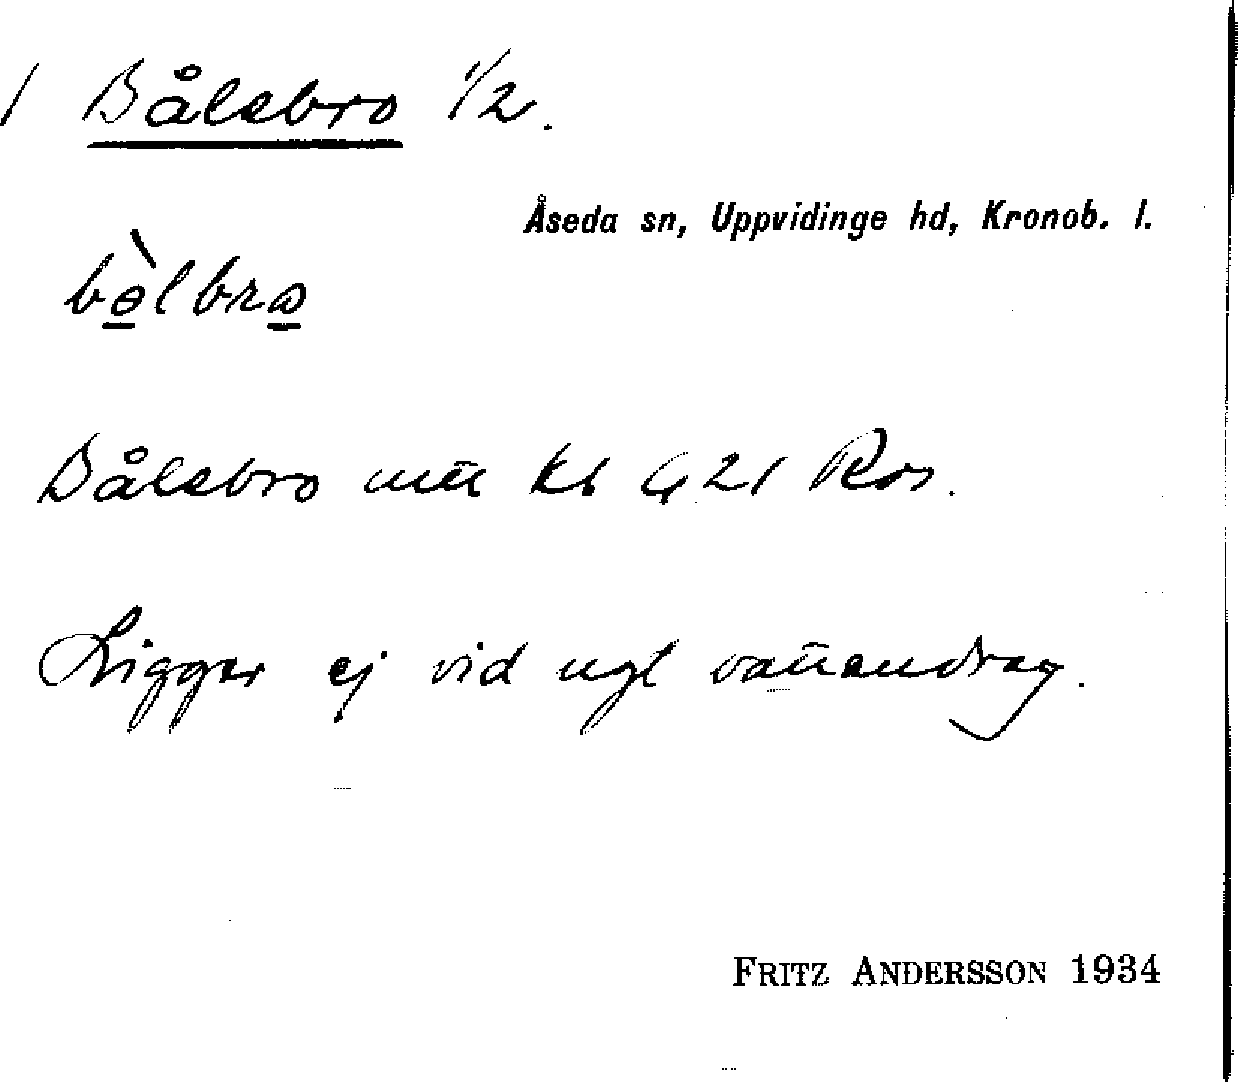 1 Bålebro 1/2.
Åseda sn, Uppvidinge hd, Kronob. l.
bòlbro
Bålebro 21 Ros.
Ligger ej vid ngt vattendrag.
FRITZ ANDERSSON 1934